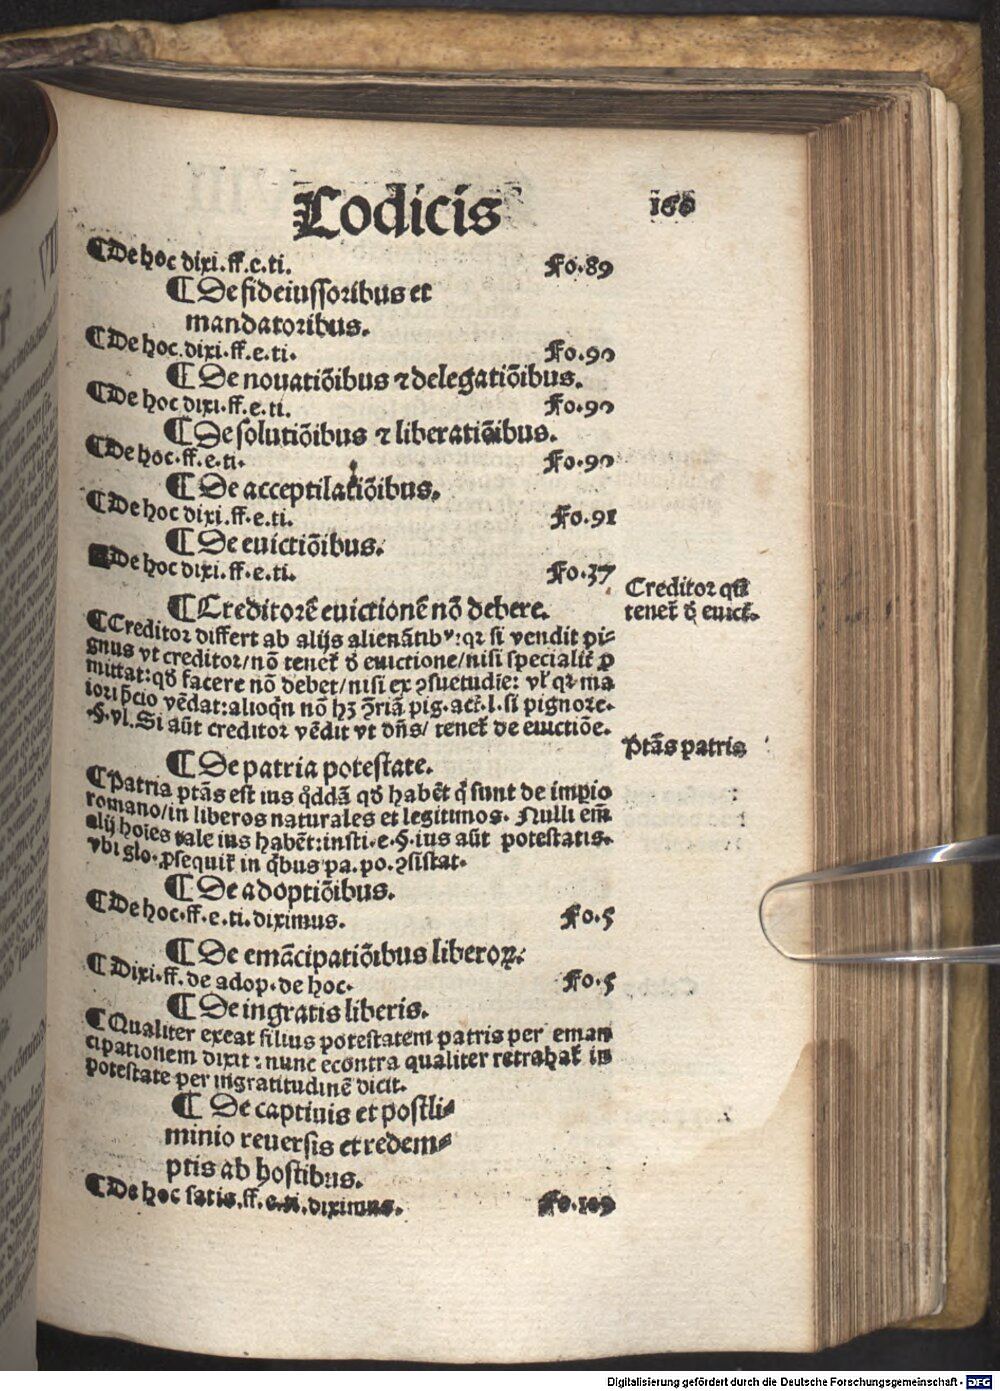 Codicis 160
¶De hoc dixi.ff.e.ti. Fo.89
¶De fideiussoribus et
mandatoribus.
¶De hoc.dixi.ff.e.ti. Fo.90
¶De nouatiõibus ⁊ delegatiõibus.
¶De hoc dixi.ff.e.ti. Fo.90
¶De solutiõibus ⁊ liberatiõibus.
¶De hoc.ff.e.ti. Fo.90
¶De acceptilatiõibus.
¶De hoc dixi.ff.e.ti. Fo.91
¶De euictiõibus.
¶De hoc dixi.ff.e.ti. Fo.37
¶Creditorẽ euictionẽ nõ debere.
Creditor qñ
teneť ꝺ̄ euict̃.
¶Creditor differt ab alijs alienãtibꝰ:qꝛ si vendit pi-
gnus vt creditor/nõ teneť ꝺ̄ euictione/nisi specialiť ꝓ
mittat:qď facere nõ debet/nisi ex ꝯsuetudĩe: vľ qꝛ ma
iori p̃cio vẽdat:alioqñ nõ hꝫ ꝯ̃riã pig.act̃.l.si pignore.
.§.vl.Si aũt creditor vẽdit vt dñs/ teneť de euictiõe.
ptãs patris
¶De patria potestate.
¶Patria ptãs est ius q̊ddã qď habẽt q̃ sunt de imp̲io
romano/in liberos naturales et legitimos. Nulli em̃
alij hoĩes tale ius habẽt:insti.e.§.ius aũt potestatis.
vbi glo.ꝓsequiť in qͥbus pa.po.ꝯsistat.
¶De adoptiõibus.
¶De hoc.ff.e.ti.diximus. Fo.5
¶De emãcipatiõibus liberoꝝ.
¶Dixi.ff.de adop.de hoc. Fo.5
¶De ingratis liberis.
¶Qualiter exeat filius potestatem patris per eman
cipationem dixit:nunc econtra qualiter retrahať in
potestate per ingratitudinẽ dicit.
¶De captiuis et postli-
minio reuersis et redem-
ptis ab hostibus.
¶De hoc satis.ff.e.ti.diximus. Fo.109
Digitalisierung gefördert durch die Deutsche Forschungsgemeinschaft - DFG